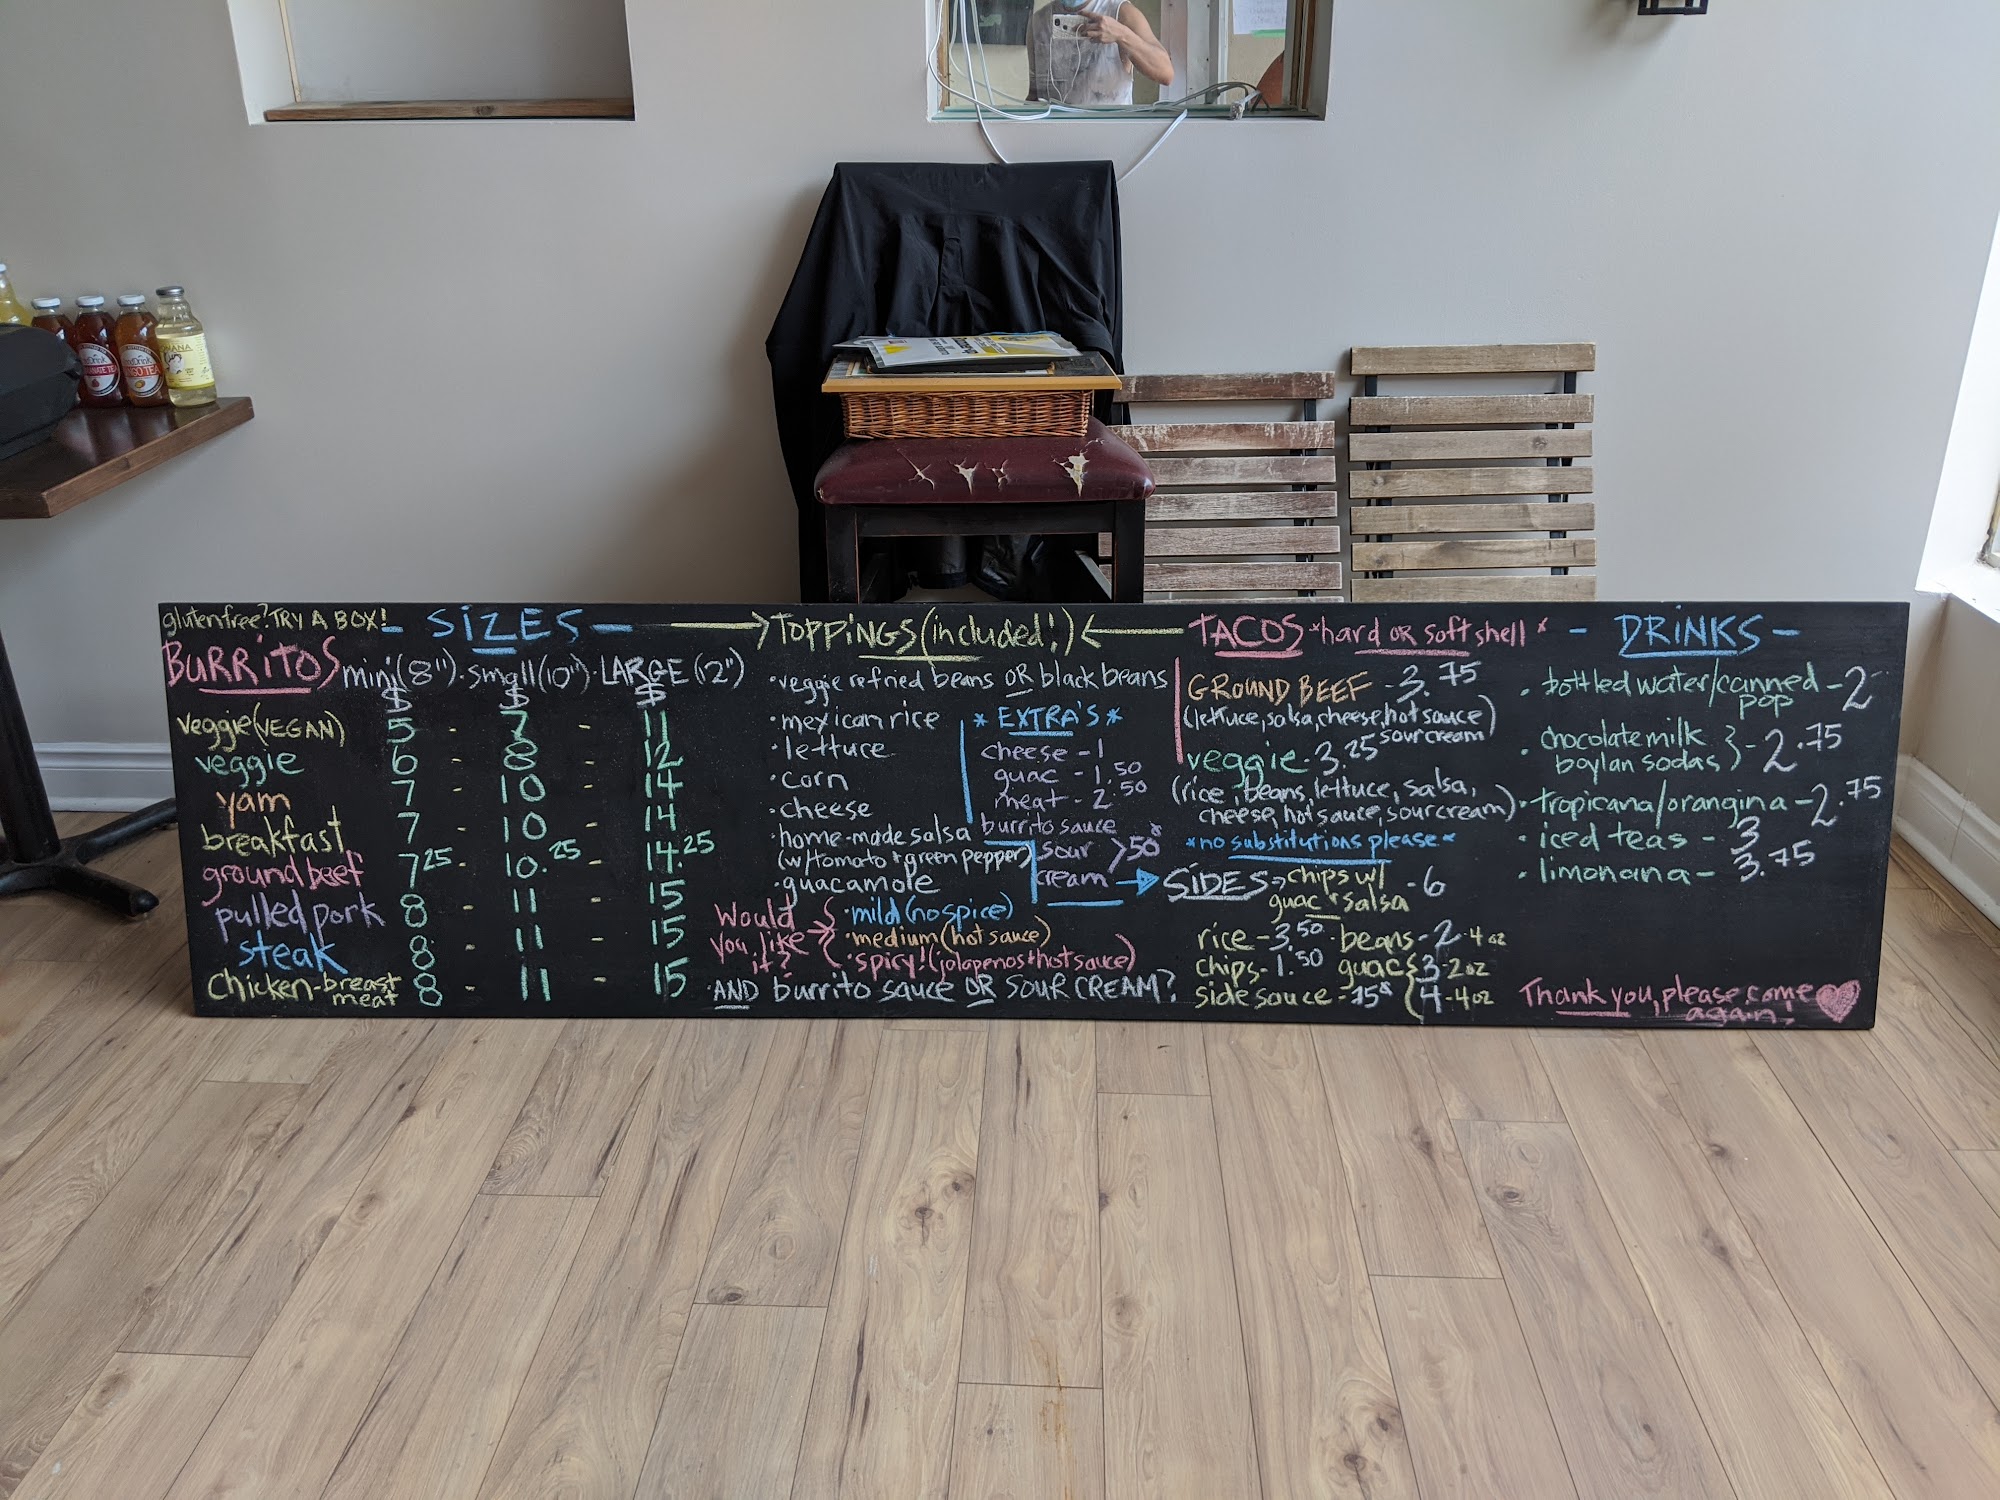 glutenfree? TRY A BOX!
- SIZES -
BURRITOS mini(8") · small(10") · LARGE (12")
$ $ $
veggie (VEGAN) 5 - 7 - 11
veggie 6 - 8 - 12
yam 7 - 10 - 14
breakfast 7 - 10 - 14
ground beef 7.25 - 10.25 - 14.25
pulled pork 8 - 11 - 15
steak 8 - 11 - 15
chicken-breast meat 8 - 11 - 15
TOPPINGS (included!)
· veggie refried beans OR black beans
· mexican rice
· lettuce
· corn
· cheese
· home-made salsa
(w/tomato + green pepper)
· guacamole
* EXTRA'S *
cheese - 1
guac - 1.50
meat - 2.50
burrito sauce
sour cream > 50¢
Would you like it?
· mild (no spice)
· medium (hot sauce)
· spicy! (jalapenos + hot sauce)
· AND burrito sauce OR SOUR CREAM?
TACOS *hard OR soft shell *
GROUND BEEF - 3.75
(lettuce, salsa, cheese, hot sauce)
sour cream
veggie - 3.25
(rice, beans, lettuce, salsa,
cheese, hot sauce, sour cream)
*no substitutions please*
SIDES → chips w/ guac + salsa - 6
rice - 3.50 · beans - 2 - 4 oz
chips - 1.50 guac { 3 - 2 oz
side sauce - 75¢ { 4 - 4 oz
- DRINKS -
· bottled water/canned pop - 2
· chocolate milk
boylan sodas } - 2.75
· tropicana/orangina - 2.75
· iced teas - 3
· limonana - 3.75
Thank you, please come
again!